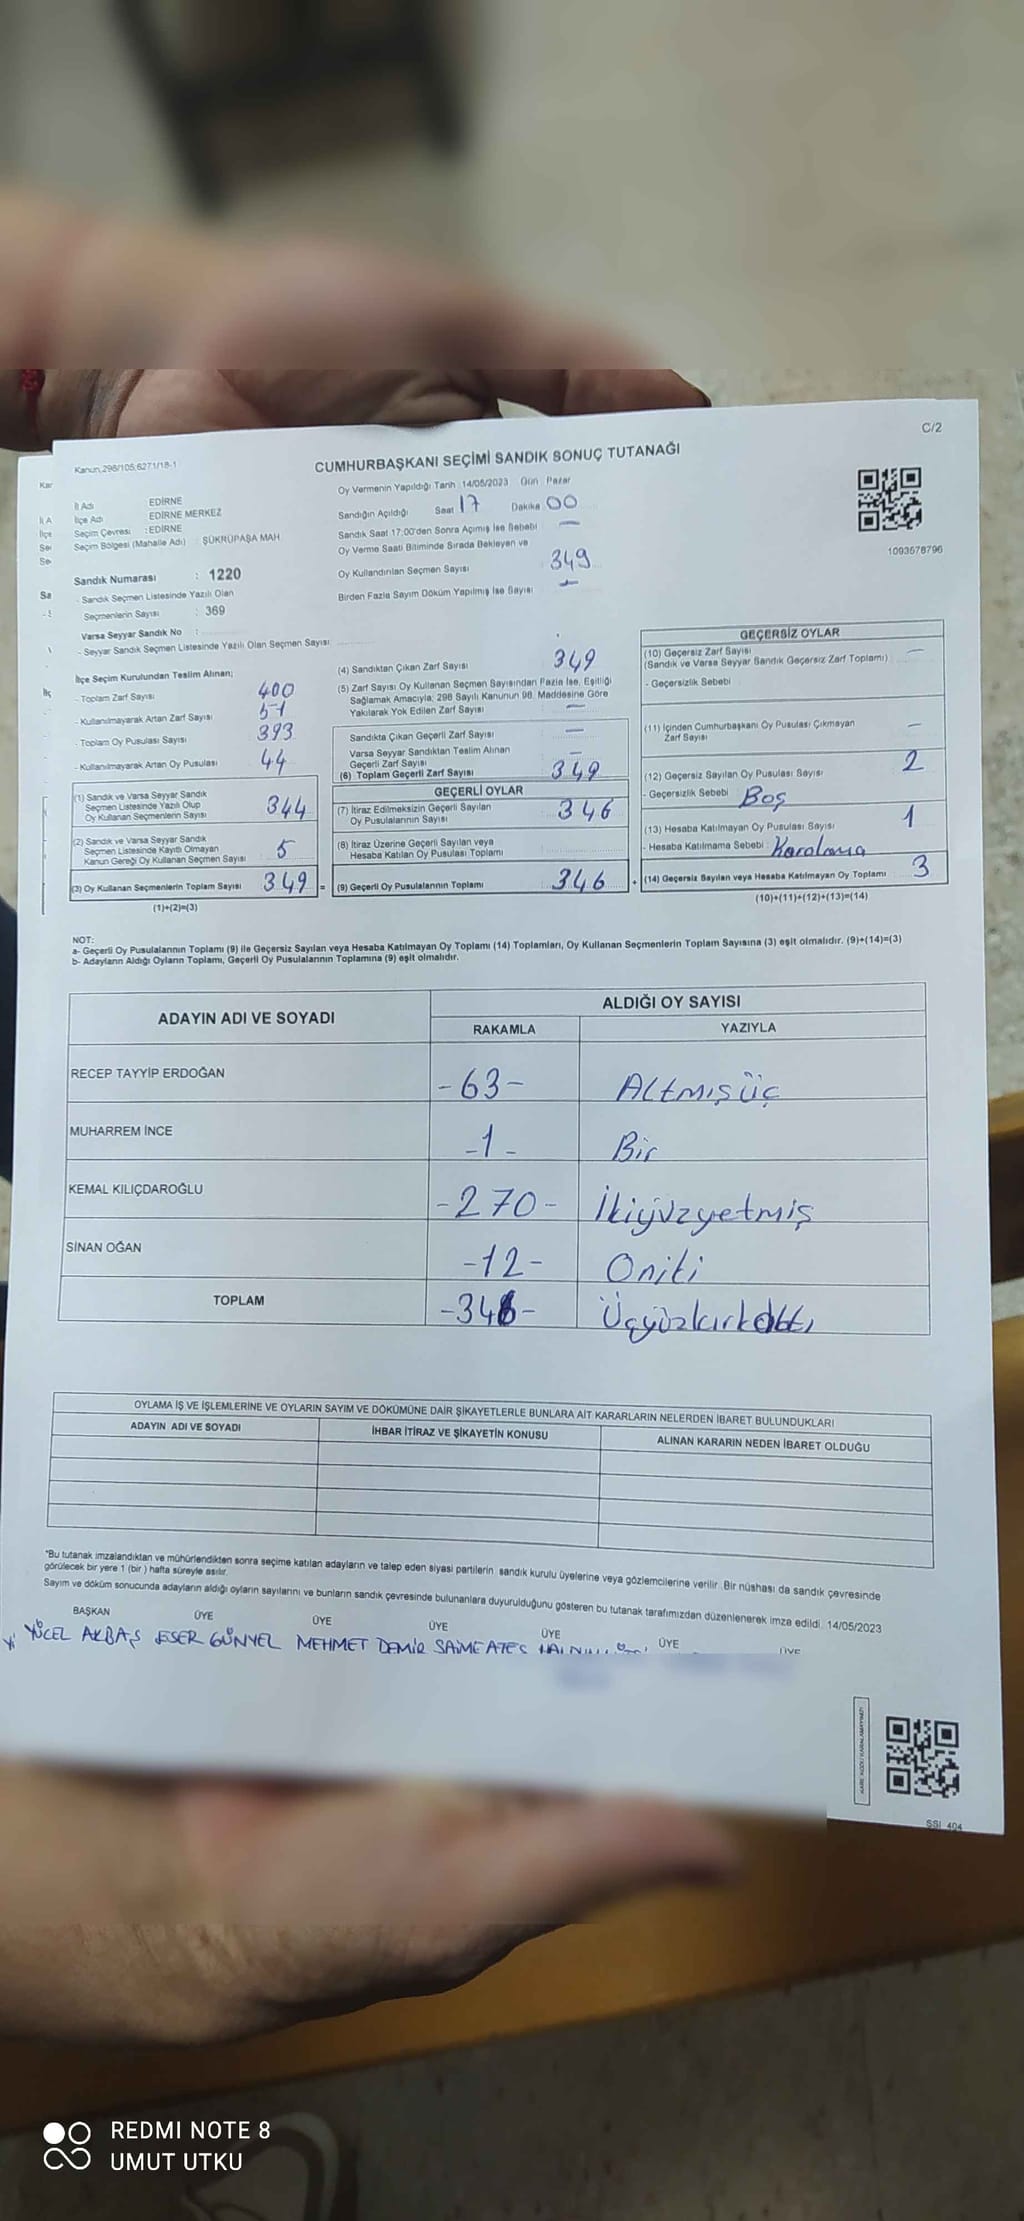 C/2
Kanun,298/105,6271/18-1
CUMHURBAŞKANI SEÇİMİ SANDIK SONUÇ TUTANAĞI
İl Adı EDİRNE
İlçe Adı EDİRNE MERKEZ
Seçim Çevresi :EDİRNE
Seçim Bölgesi (Mahalle Adı) : ŞÜKRÜPAŞA MAH
Sandık Numarası : 1220
- Sandık Seçmen Listesinde Yazılı Olan
Seçmenlerin Sayısı : 369
Varsa Seyyar Sandık No :
- Seyyar Sandık Seçmen Listesinde Yazılı Olan Seçmen Sayısı
Oy Vermenin Yapıldığı Tarih 14/05/2023 Gün Pazar
Sandığın Açıldığı Saat 17 Dakika 00
Sandık Saat 17:00'den Sonra Açımış İse Sebebi —
Oy Verme Saati Bitiminde Sırada Bekleyen ve
Oy Kullandırılan Seçmen Sayısı 349
Birden Fazla Sayım Döküm Yapılmış İse Sayısı —
1093678796
İlçe Seçim Kurulundan Teslim Alınan;
- Toplam Zarf Sayısı 400
- Kullanılmayarak Artan Zarf Sayısı 51
- Toplam Oy Pusulası Sayısı 393
- Kullanılmayarak Artan Oy Pusulası 44
(1) Sandık ve Varsa Seyyar Sandık
Seçmen Listesinde Yazılı Olup
Oy Kullanan Seçmenlerin Sayısı 344
(2) Sandık ve Varsa Seyyar Sandık
Seçmen Listesinde Kayıtlı Olmayan
Kanun Gereği Oy Kullanan Seçmen Sayısı 5
(3) Oy Kullanan Seçmenlerin Toplam Sayısı 349 =
(1)+(2)=(3)
(4) Sandıktan Çıkan Zarf Sayısı 349
(5) Zarf Sayısı Oy Kullanan Seçmen Sayısından Fazla İse, Eşitliği
Sağlamak Amacıyla; 298 Sayılı Kanunun 98. Maddesine Göre
Yakılarak Yok Edilen Zarf Sayısı —
Sandıkta Çıkan Geçerli Zarf Sayısı —
Varsa Seyyar Sandıktan Teslim Alınan
Geçerli Zarf Sayısı —
(6) Toplam Geçerli Zarf Sayısı 349
GEÇERLİ OYLAR
(7) İtiraz Edilmeksizin Geçerli Sayılan
Oy Pusulalarının Sayısı 346
(8) İtiraz Üzerine Geçerli Sayılan veya
Hesaba Katılan Oy Pusulası Toplamı
(9) Geçerli Oy Pusulalarının Toplamı 346 +
GEÇERSİZ OYLAR
(10) Geçersiz Zarf Sayısı —
(Sandık ve Varsa Seyyar Sandık Geçersiz Zarf Toplamı)
- Geçersizlik Sebebi
(11) İçinden Cumhurbaşkanı Oy Pusulası Çıkmayan
Zarf Sayısı —
(12) Geçersiz Sayılan Oy Pusulası Sayısı 2
- Geçersizlik Sebebi Boş
(13) Hesaba Katılmayan Oy Pusulası Sayısı 1
- Hesaba Katılmama Sebebi : Karalama
(14) Geçersiz Sayılan veya Hesaba Katılmayan Oy Toplamı 3
(10)+(11)+(12)+(13)=(14)
NOT:
a- Geçerli Oy Pusulalarının Toplamı (9) ile Geçersiz Sayılan veya Hesaba Katılmayan Oy Toplamı (14) Toplamları, Oy Kullanan Seçmenlerin Toplam Sayısına (3) eşit olmalıdır. (9)+(14)=(3)
b- Adayların Aldığı Oyların Toplamı, Geçerli Oy Pusulalarının Toplamına (9) eşit olmalıdır.
ADAYIN ADI VE SOYADI
ALDIĞI OY SAYISI
RAKAMLA YAZIYLA
RECEP TAYYİP ERDOĞAN -63- Altmışüç
MUHARREM İNCE -1- Bir
KEMAL KILIÇDAROĞLU -270- İkiyüzyetmiş
SİNAN OĞAN -12- Oniki
TOPLAM -346- Üçyüzkırkaltı
OYLAMA İŞ VE İŞLEMLERİNE VE OYLARIN SAYIM VE DÖKÜMÜNE DAİR ŞİKAYETLERLE BUNLARA AİT KARARLARIN NELERDEN İBARET BULUNDUKLARI
ADAYIN ADI VE SOYADI İHBAR İTİRAZ VE ŞİKAYETİN KONUSU ALINAN KARARIN NEDEN İBARET OLDUĞU
"Bu tutanak imzalandıktan ve mühürlendikten sonra seçime katılan adayların ve talep eden siyasi partilerin sandık kurulu üyelerine veya gözlemcilerine verilir. Bir nüshası da sandık çevresinde
görülecek bir yere 1 (bir ) hafta süreyle asılır.
Sayım ve döküm sonucunda adayların aldığı oyların sayılarını ve bunların sandık çevresinde bulunanlara duyurulduğunu gösteren bu tutanak tarafımızdan düzenlenerek imza edildi. 14/05/2023
BAŞKAN ÜYE ÜYE ÜYE ÜYE ÜYE ÜYE
YÜCEL AKBAŞ ESER GÜNYEL MEHMET DEMİR SAİME ATEŞ
KARE KODU KARALAMAYINIZ!
SSI 404
REDMI NOTE 8
UMUT UTKU